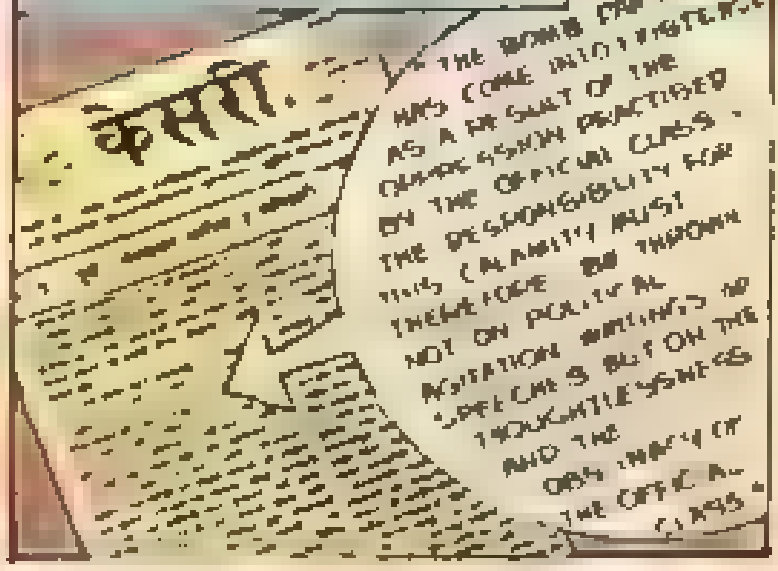 केसरी.
THE BOMB
HAS COME INTO EXISTENCE
AS A RESULT OF THE
OPPRESSION PRACTISED
BY THE OFFICIAL CLASS.
THE RESPONSIBILITY FOR
THIS CALAMITY MUST
THEREFORE BE THROWN
NOT ON POLITICAL
AGITATION WRITINGS OR
SPEECHES BUT ON THE
THOUGHTLESSNESS
AND THE
OBSTINACY OF
THE OFFICIAL
CLASS.